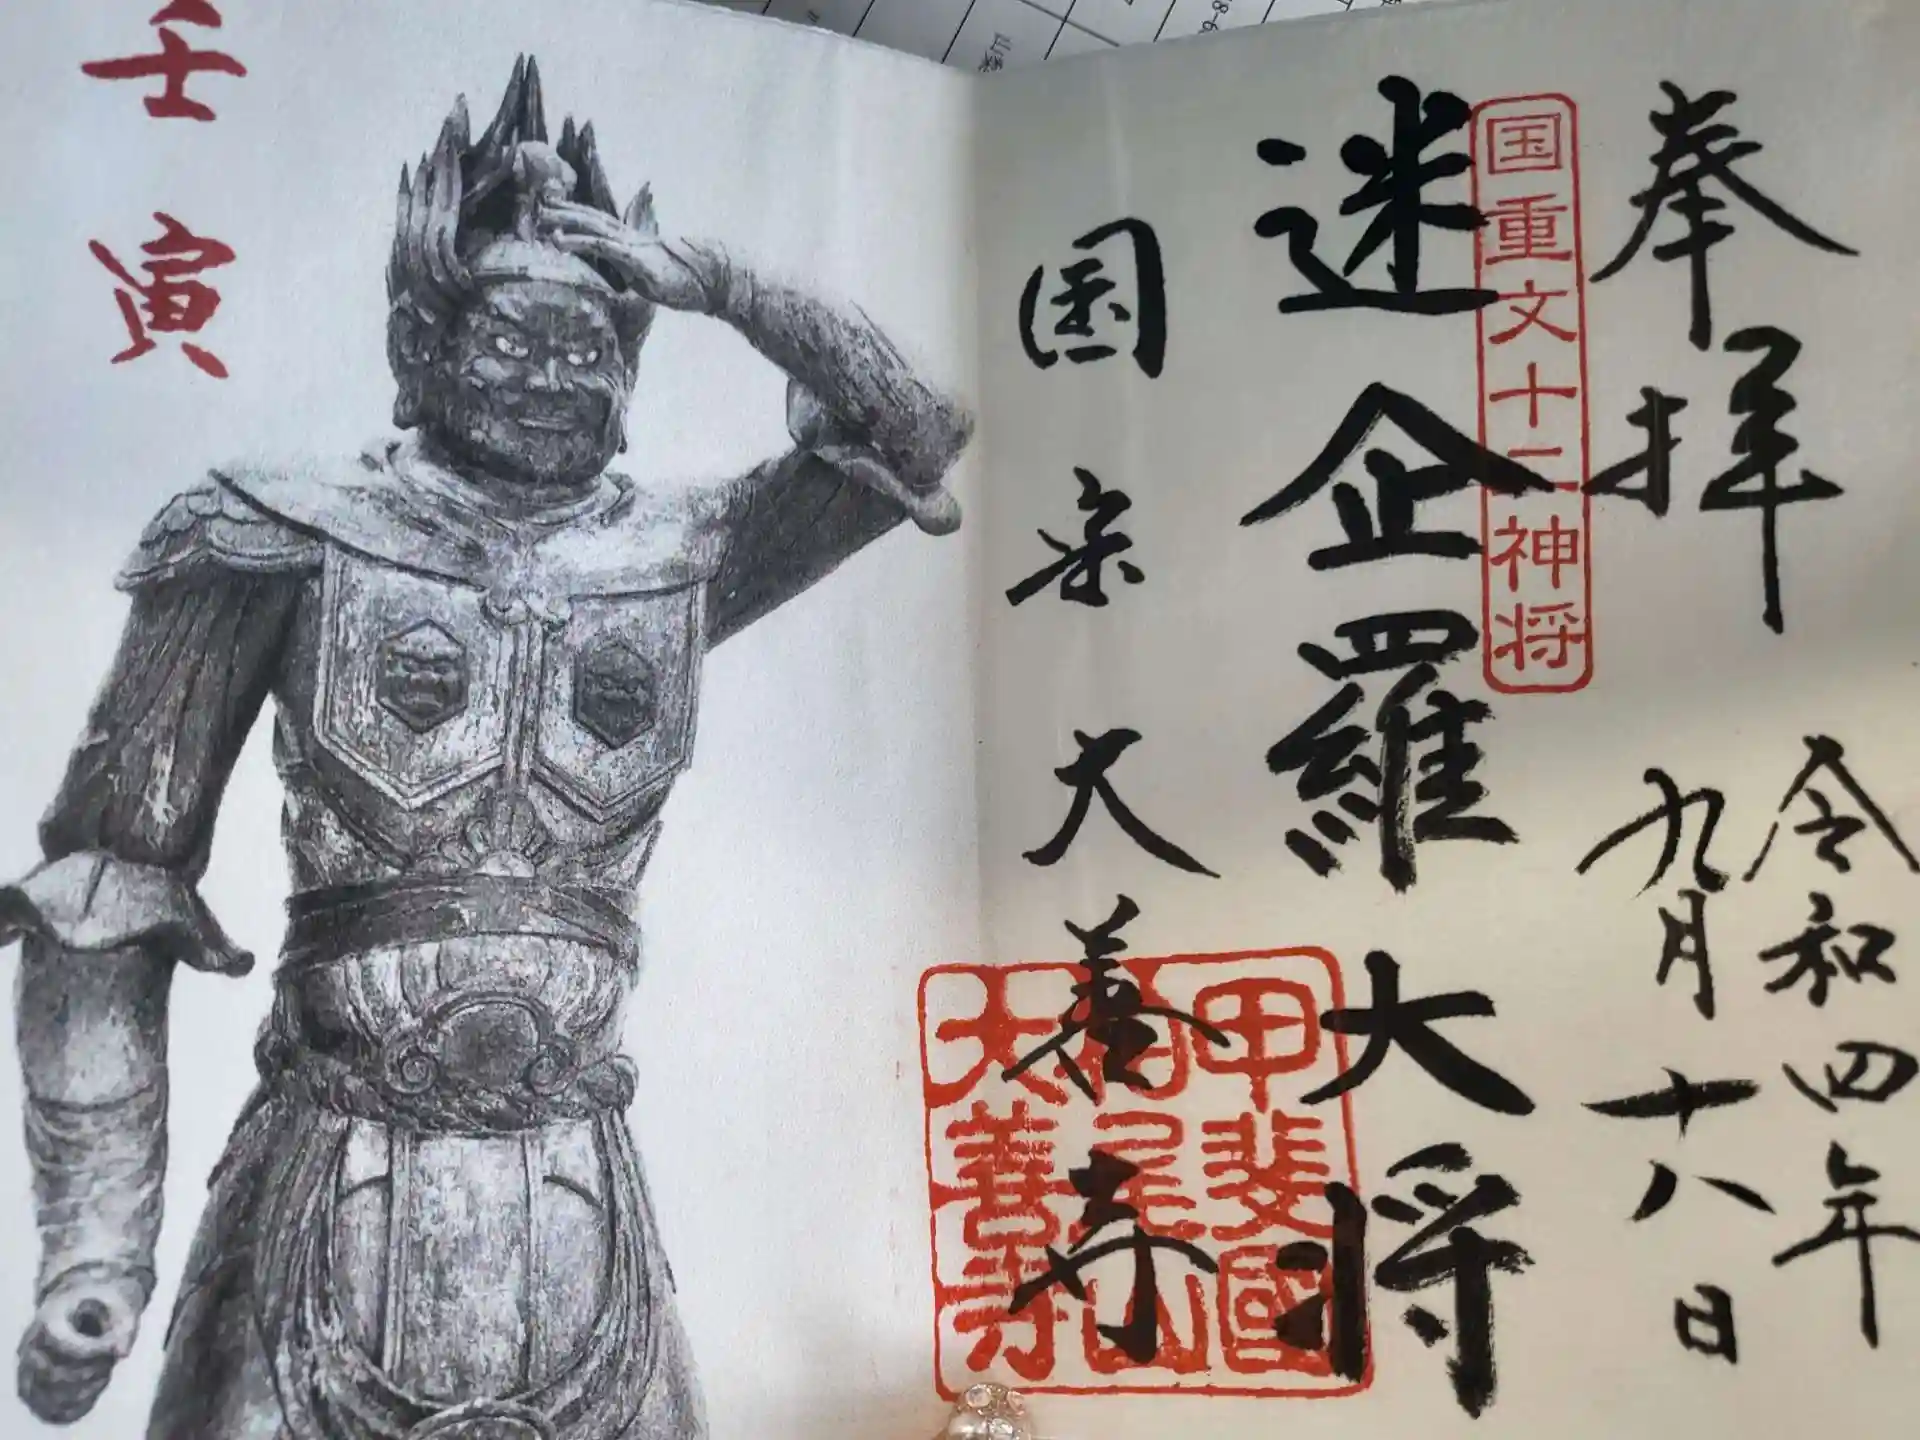 奉拝
令和四年
九月十八日
国重文十二神将
迷企羅大将
国宝大善寺
甲斐國
柏尾山
大善寺
壬寅